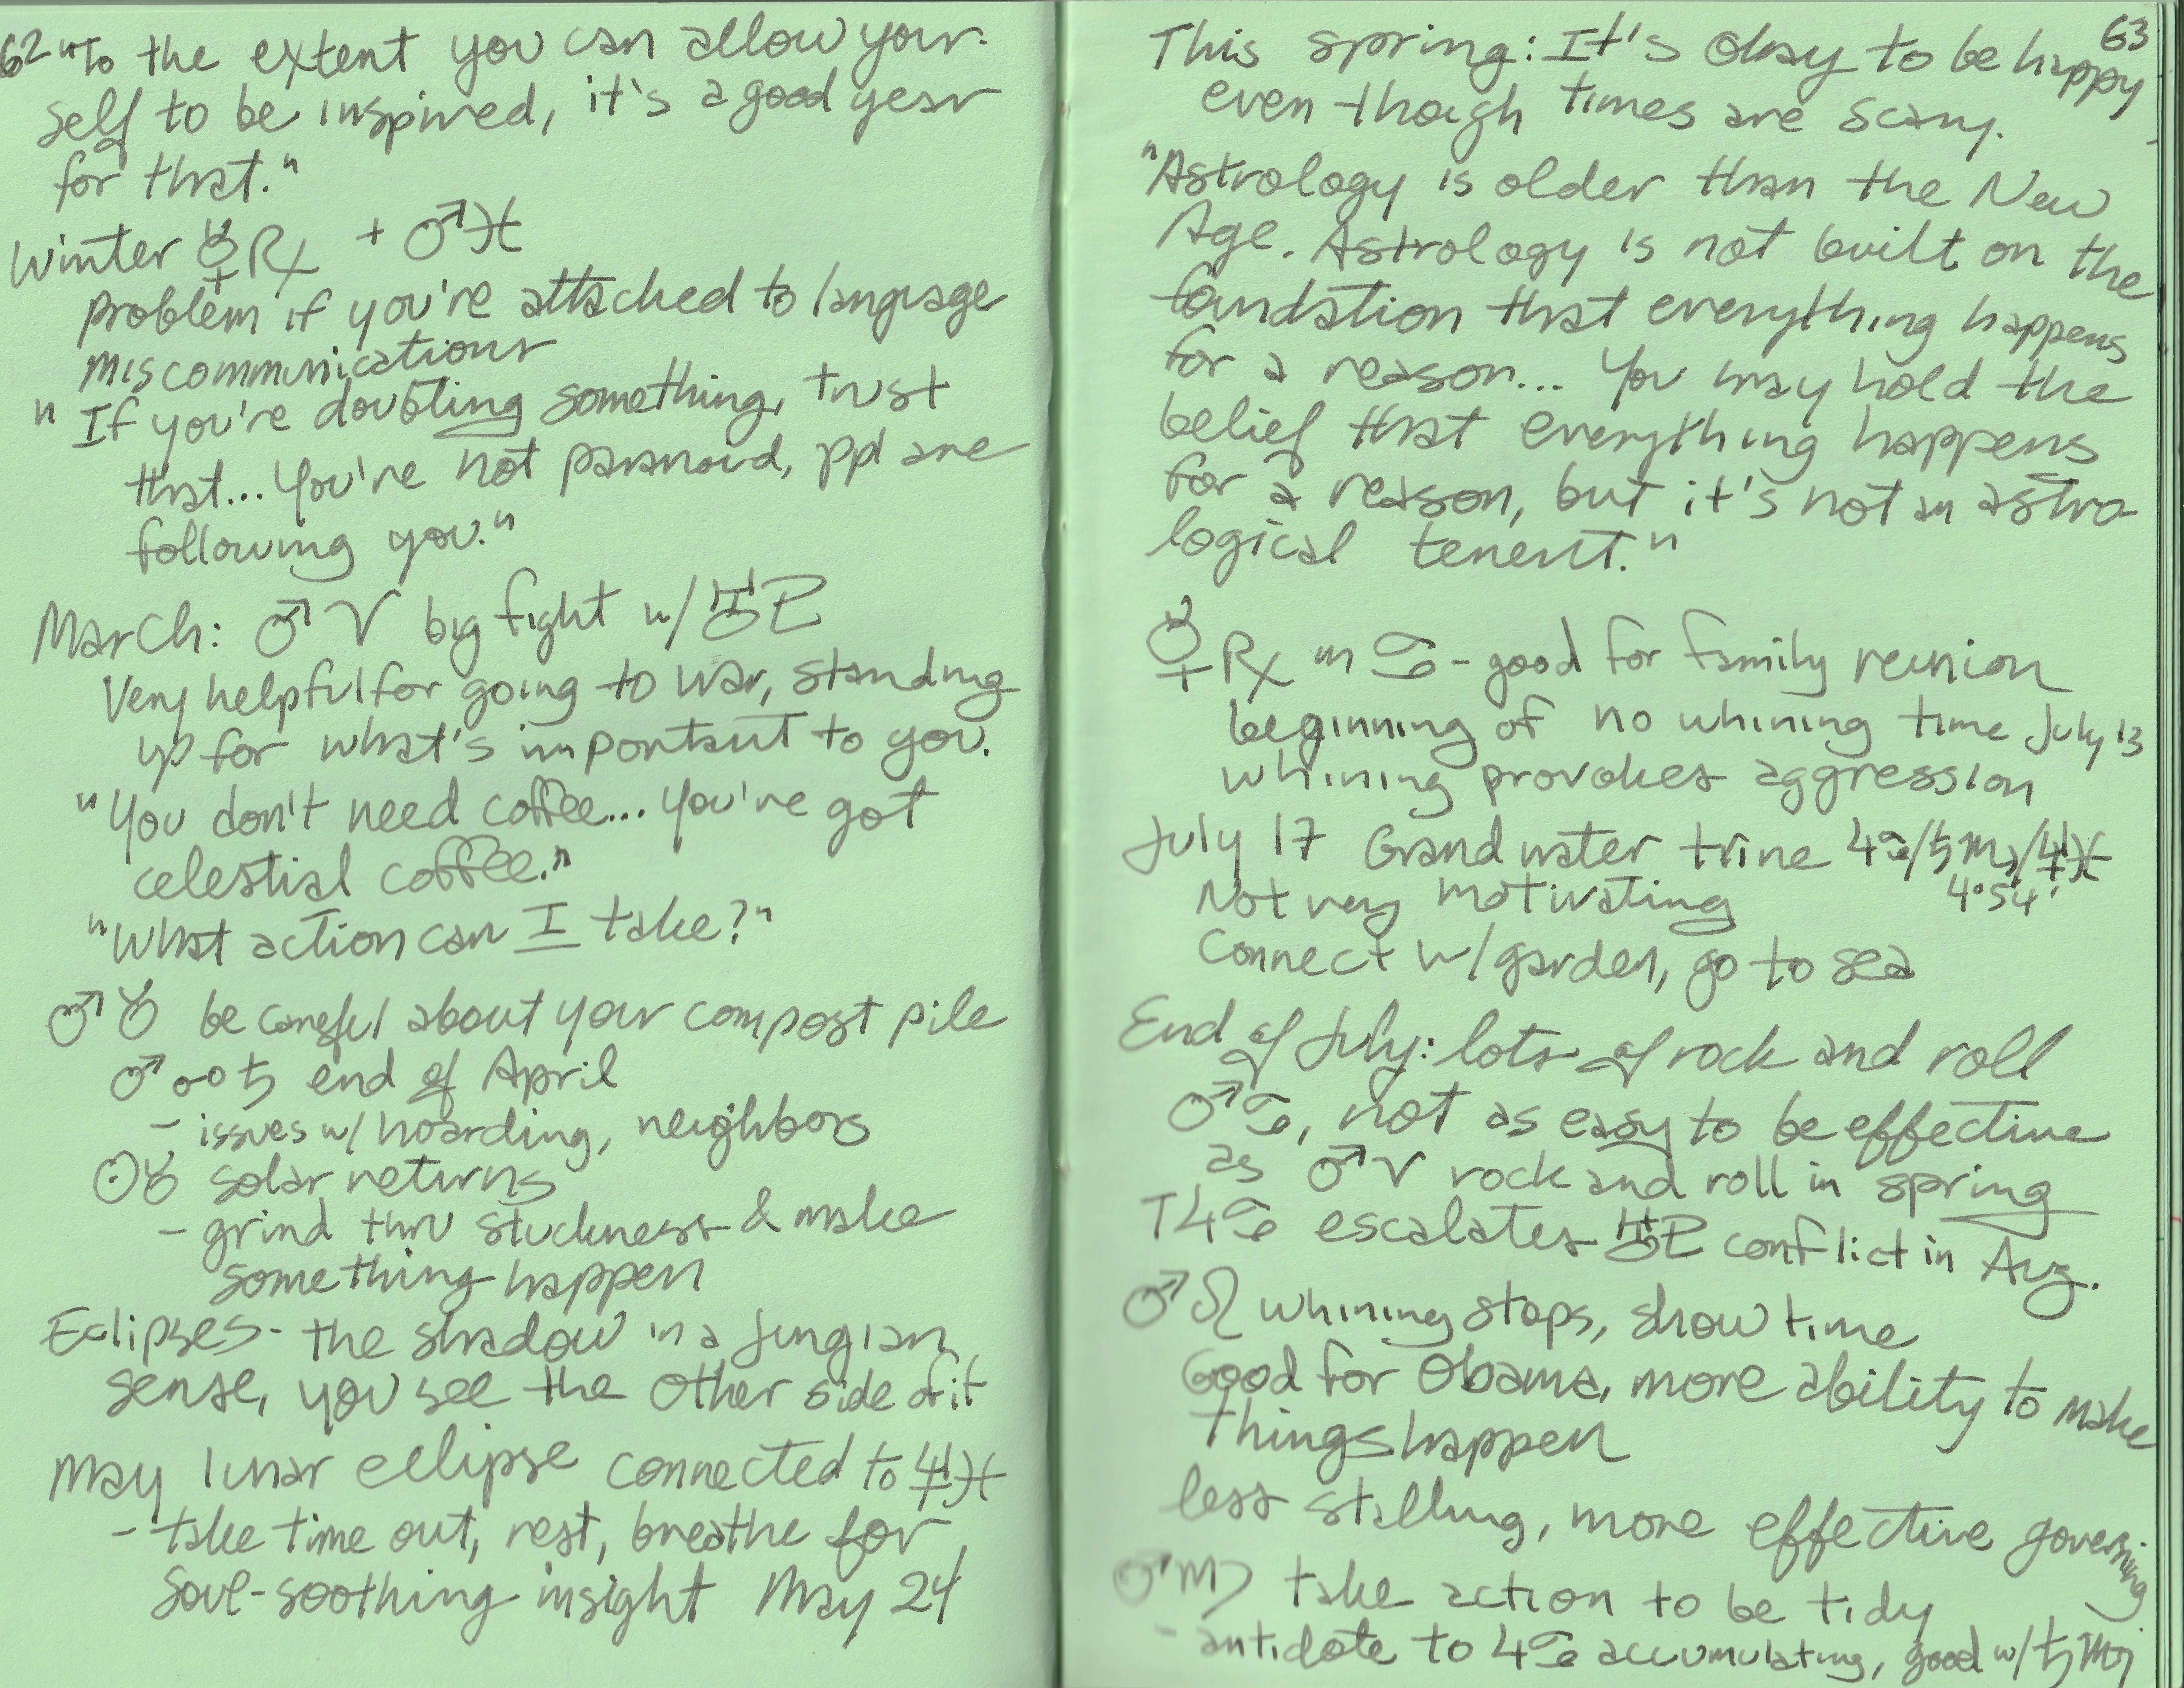 62 "To the extent you can allow your-
self to be inspired, it's a good year
for that."
Winter ☿℞ + ♂♓
problem if you're attached to language
miscommunications
"If you're doubting something, trust
that... You're not paranoid, ppl are
following you."
March: ♂♈ big fight w/ ♅♇
Very helpful for going to war, standing
up for what's important to you.
"You don't need coffee... You've got
celestial coffee."
"What action can I take?"
♂♉ be careful about your compost pile
♂☍♄ end of April
- issues w/ hoarding, neighbors
☉♉ solar returns
- grind thru stuckness & make
something happen
Eclipses - the shadow in a Jungian
sense, you see the other side of it
May lunar eclipse connected to ♆♓
- take time out, rest, breathe for
soul-soothing insight May 24
63
This spring: It's okay to be happy
even though times are scary.
"Astrology is older than the New
Age. Astrology is not built on the
foundation that everything happens
for a reason... You may hold the
belief that everything happens
for a reason, but it's not an astro
logical tenent."
☿℞ in ♋ - good for family reunion
beginning of no whining time July 13
whining provokes aggression
July 17 Grand water trine ♃♋/♄♏/♆♓
4°54'
Not very motivating
Connect w/ garden, go to sea
End of July: lots of rock and roll
♂♋, not as easy to be effective
as ♂♈ rock and roll in spring
T♃♋ escalates ♅♇ conflict in Aug.
♂♌ whining stops, show time
Good for Obama, more ability to make
things happen
less stalling, more effective governing
♂♍ take action to be tidy
- antidote to ♃♋ accumulating, good w/ ♄♏